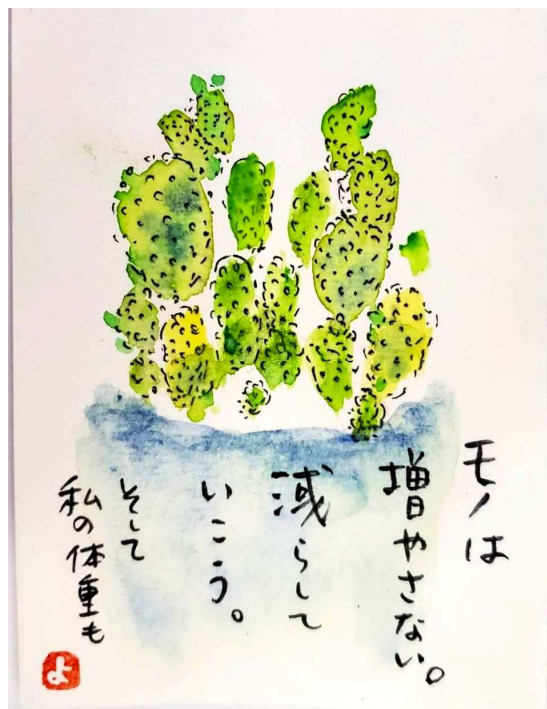 モノは
増やさない。
減らして
いこう。
そして
私の体重も
よ